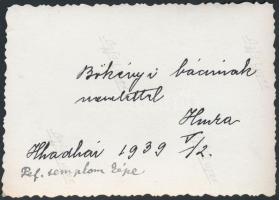 Bökényi bácsinak
szeretettel
Hunra
Hhadhái 1939 V/2.
Ref. templom képe